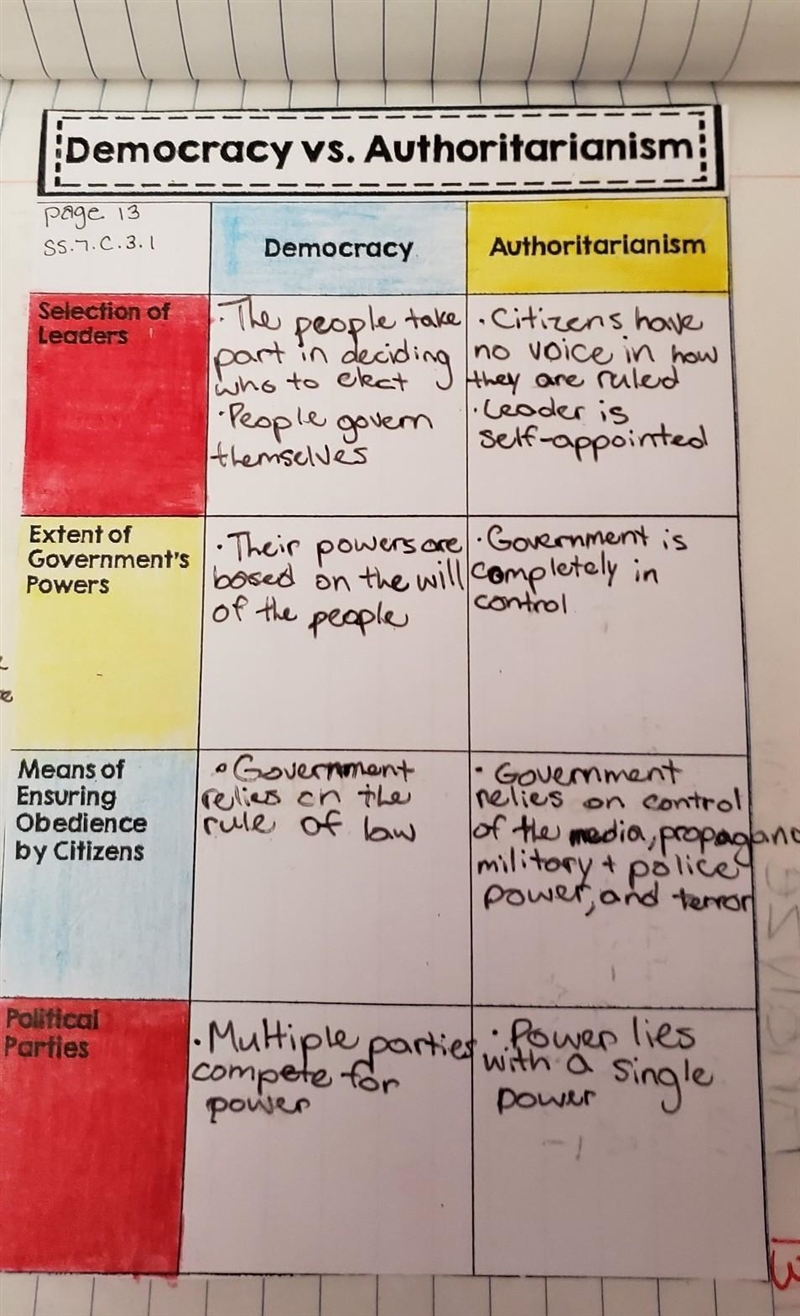 Democracy vs. Authoritarianism
page 13
SS.7.C.3.1
Democracy
Authoritarianism
Selection of
Leaders
· The people take
part in deciding
who to elect
· People govern
themselves
· Citizens have
no voice in how
they are ruled
· Leader is
self-appointed
Extent of
Government's
Powers
· Their powers are
based on the will
of the people
· Government is
completely in
control
Means of
Ensuring
Obedience
by Citizens
· Government
relies on the
rule of law
· Government
relies on control
of the media, propagand
military + police
power, and terror
Political
Parties
· Multiple parties
compete for
power
· Power lies
with a single
power